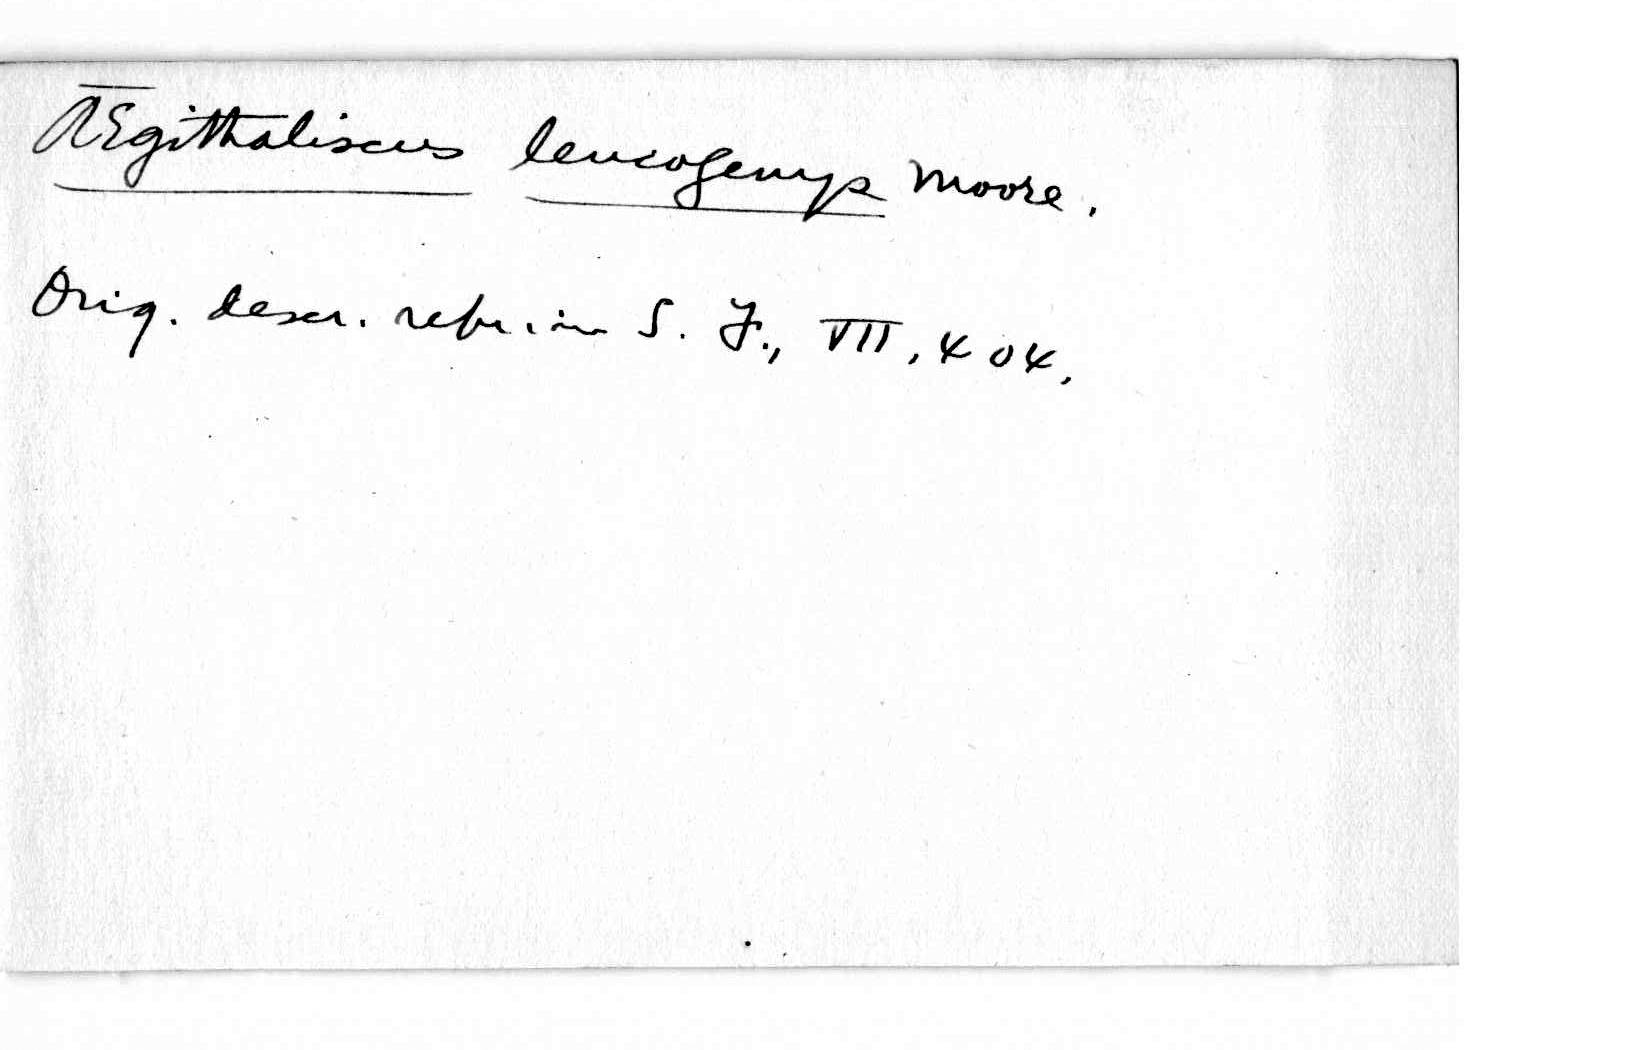 Ægithaliscus leucogenys Moore.
Orig. descr. repr. in S. F., VII, 404.